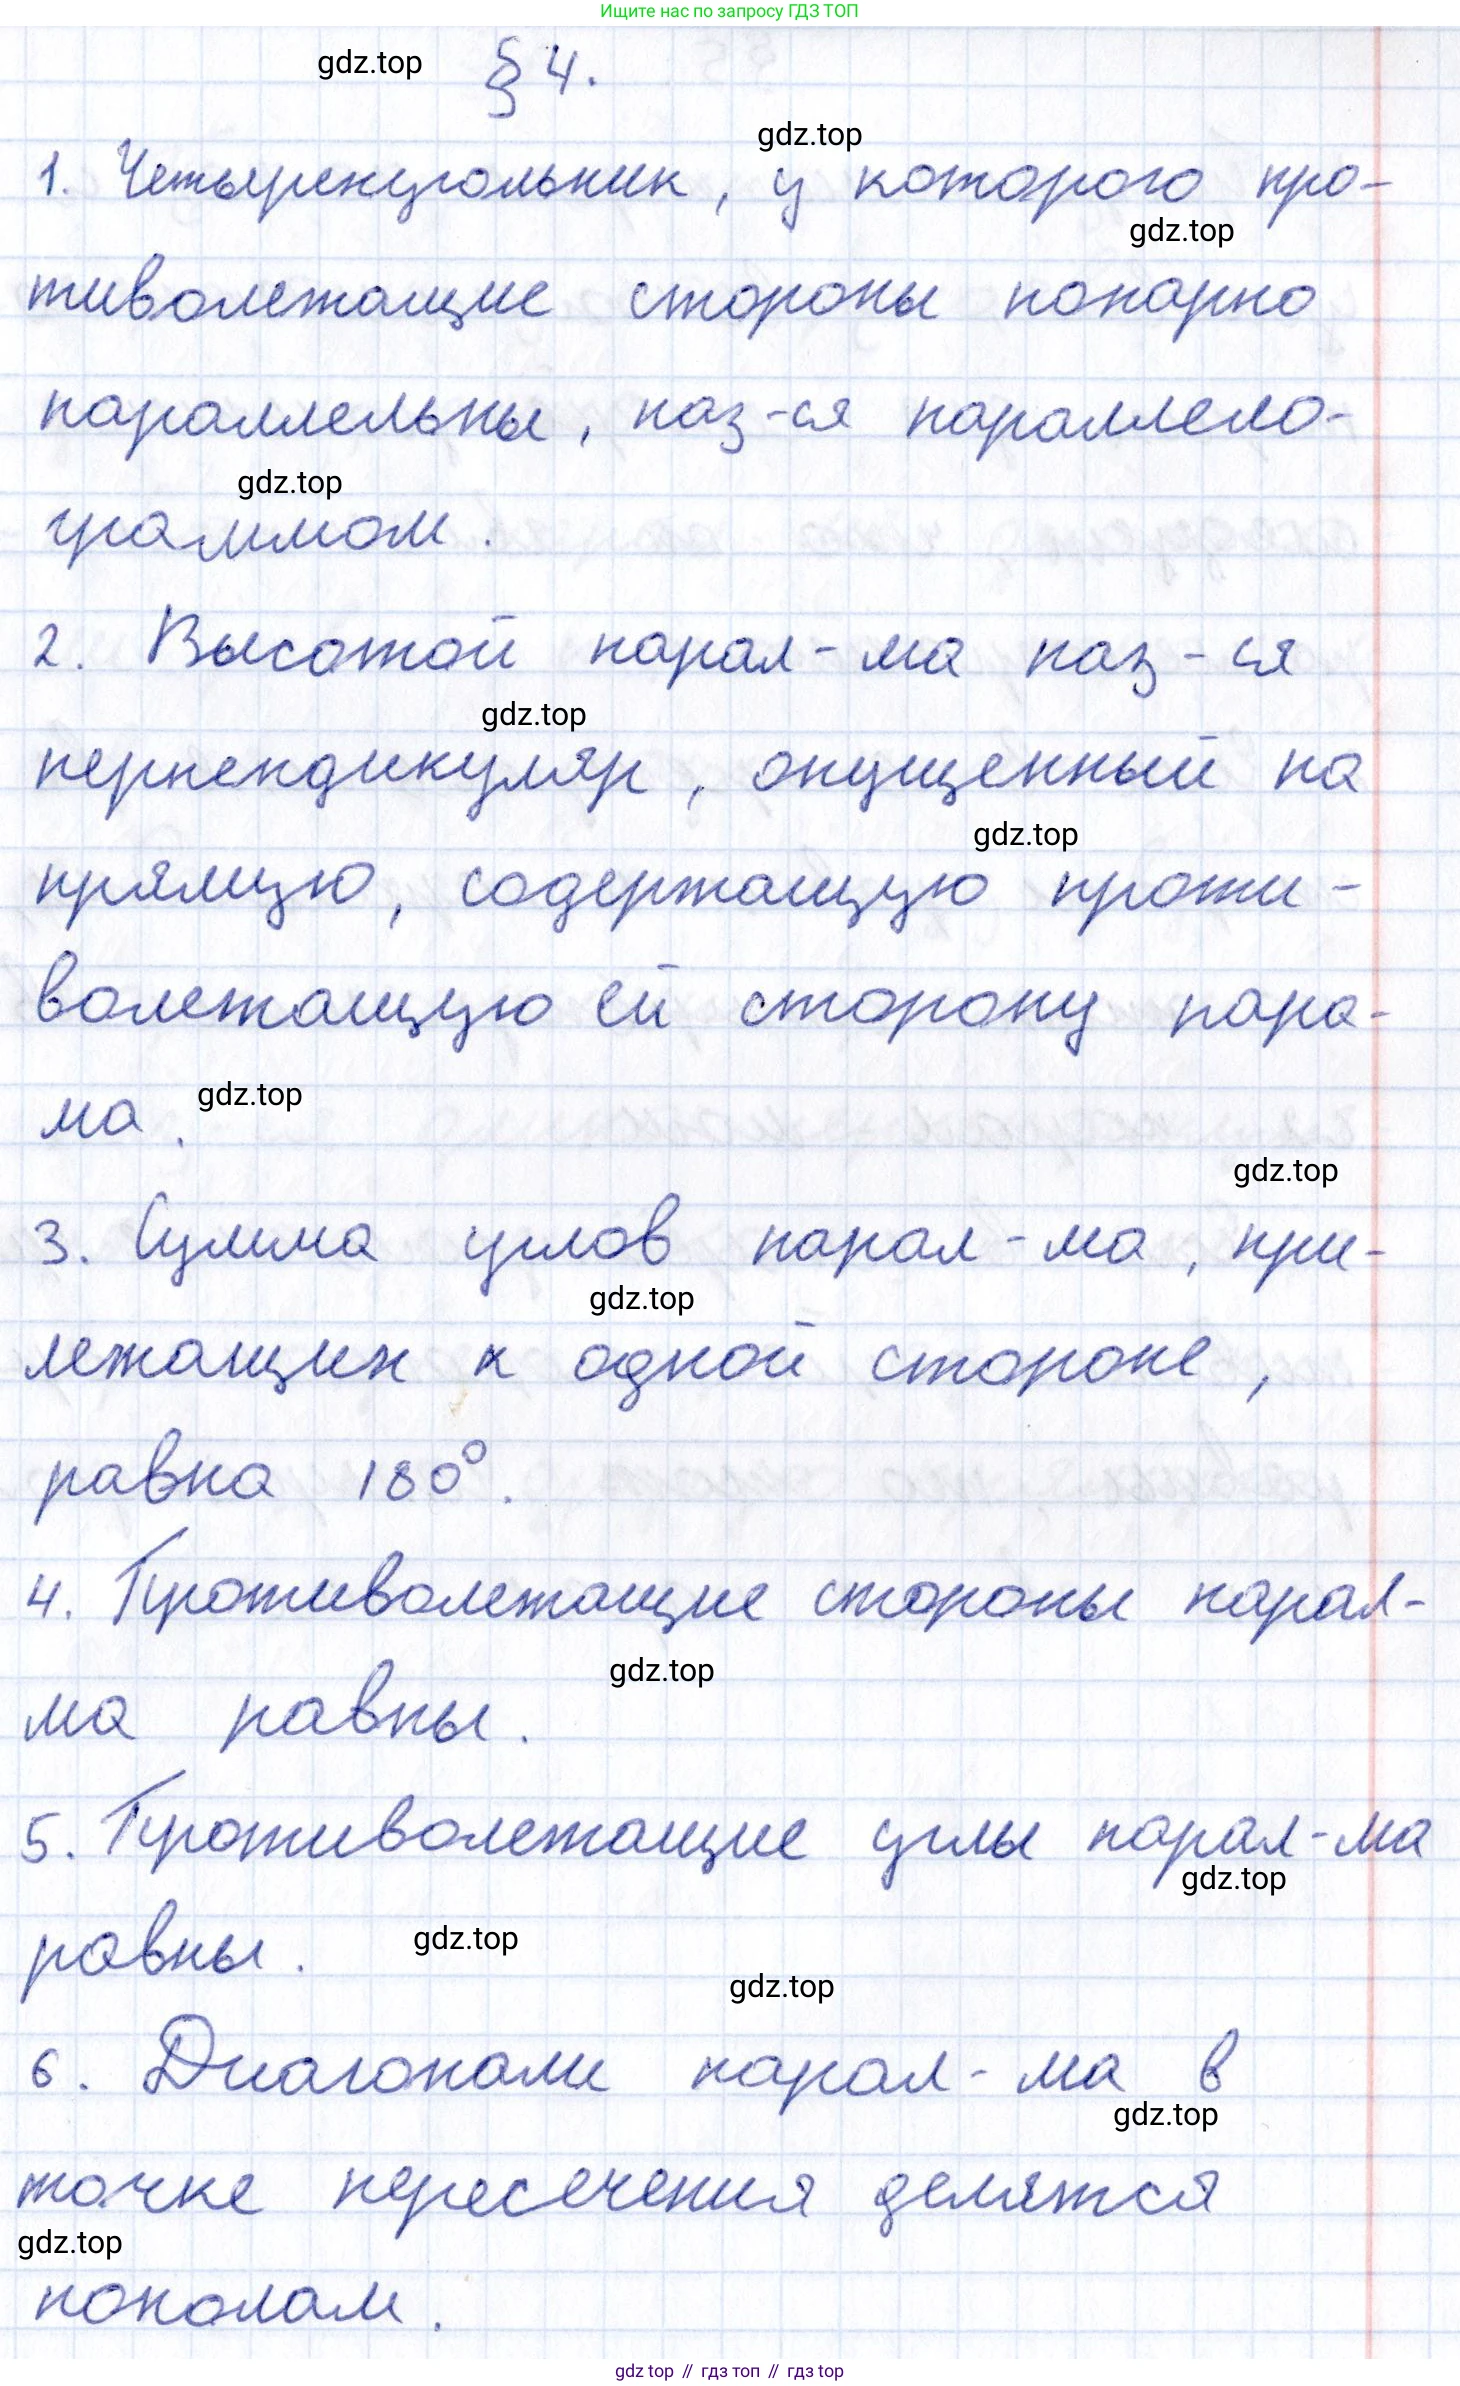 Ищите нас по запросу ГДЗ ТОП
gdz.top § 4.
gdz.top
1. Четырехугольник, у которого про-
gdz.top
тиволежащие стороны попарно
параллельны, наз-ся параллело-
gdz.top
граммом.
2. Высотой парал-ма наз-ся
gdz.top
перпендикуляр, опущенный на
gdz.top
прямую, содержащую проти-
волежащую ей сторону пара-
ма. gdz.top
gdz.top
3. Сумма углов парал-ма, при-
gdz.top
лежащих к одной стороне,
равна 180°.
4. Противолежащие стороны парал-
gdz.top
ма равны.
5. Противолежащие углы парал-ма
gdz.top
равны. gdz.top
gdz.top
6. Диагонали парал-ма в
gdz.top
точке пересечения делятся
gdz.top
пополам.
gdz top // гдз топ // гдз top